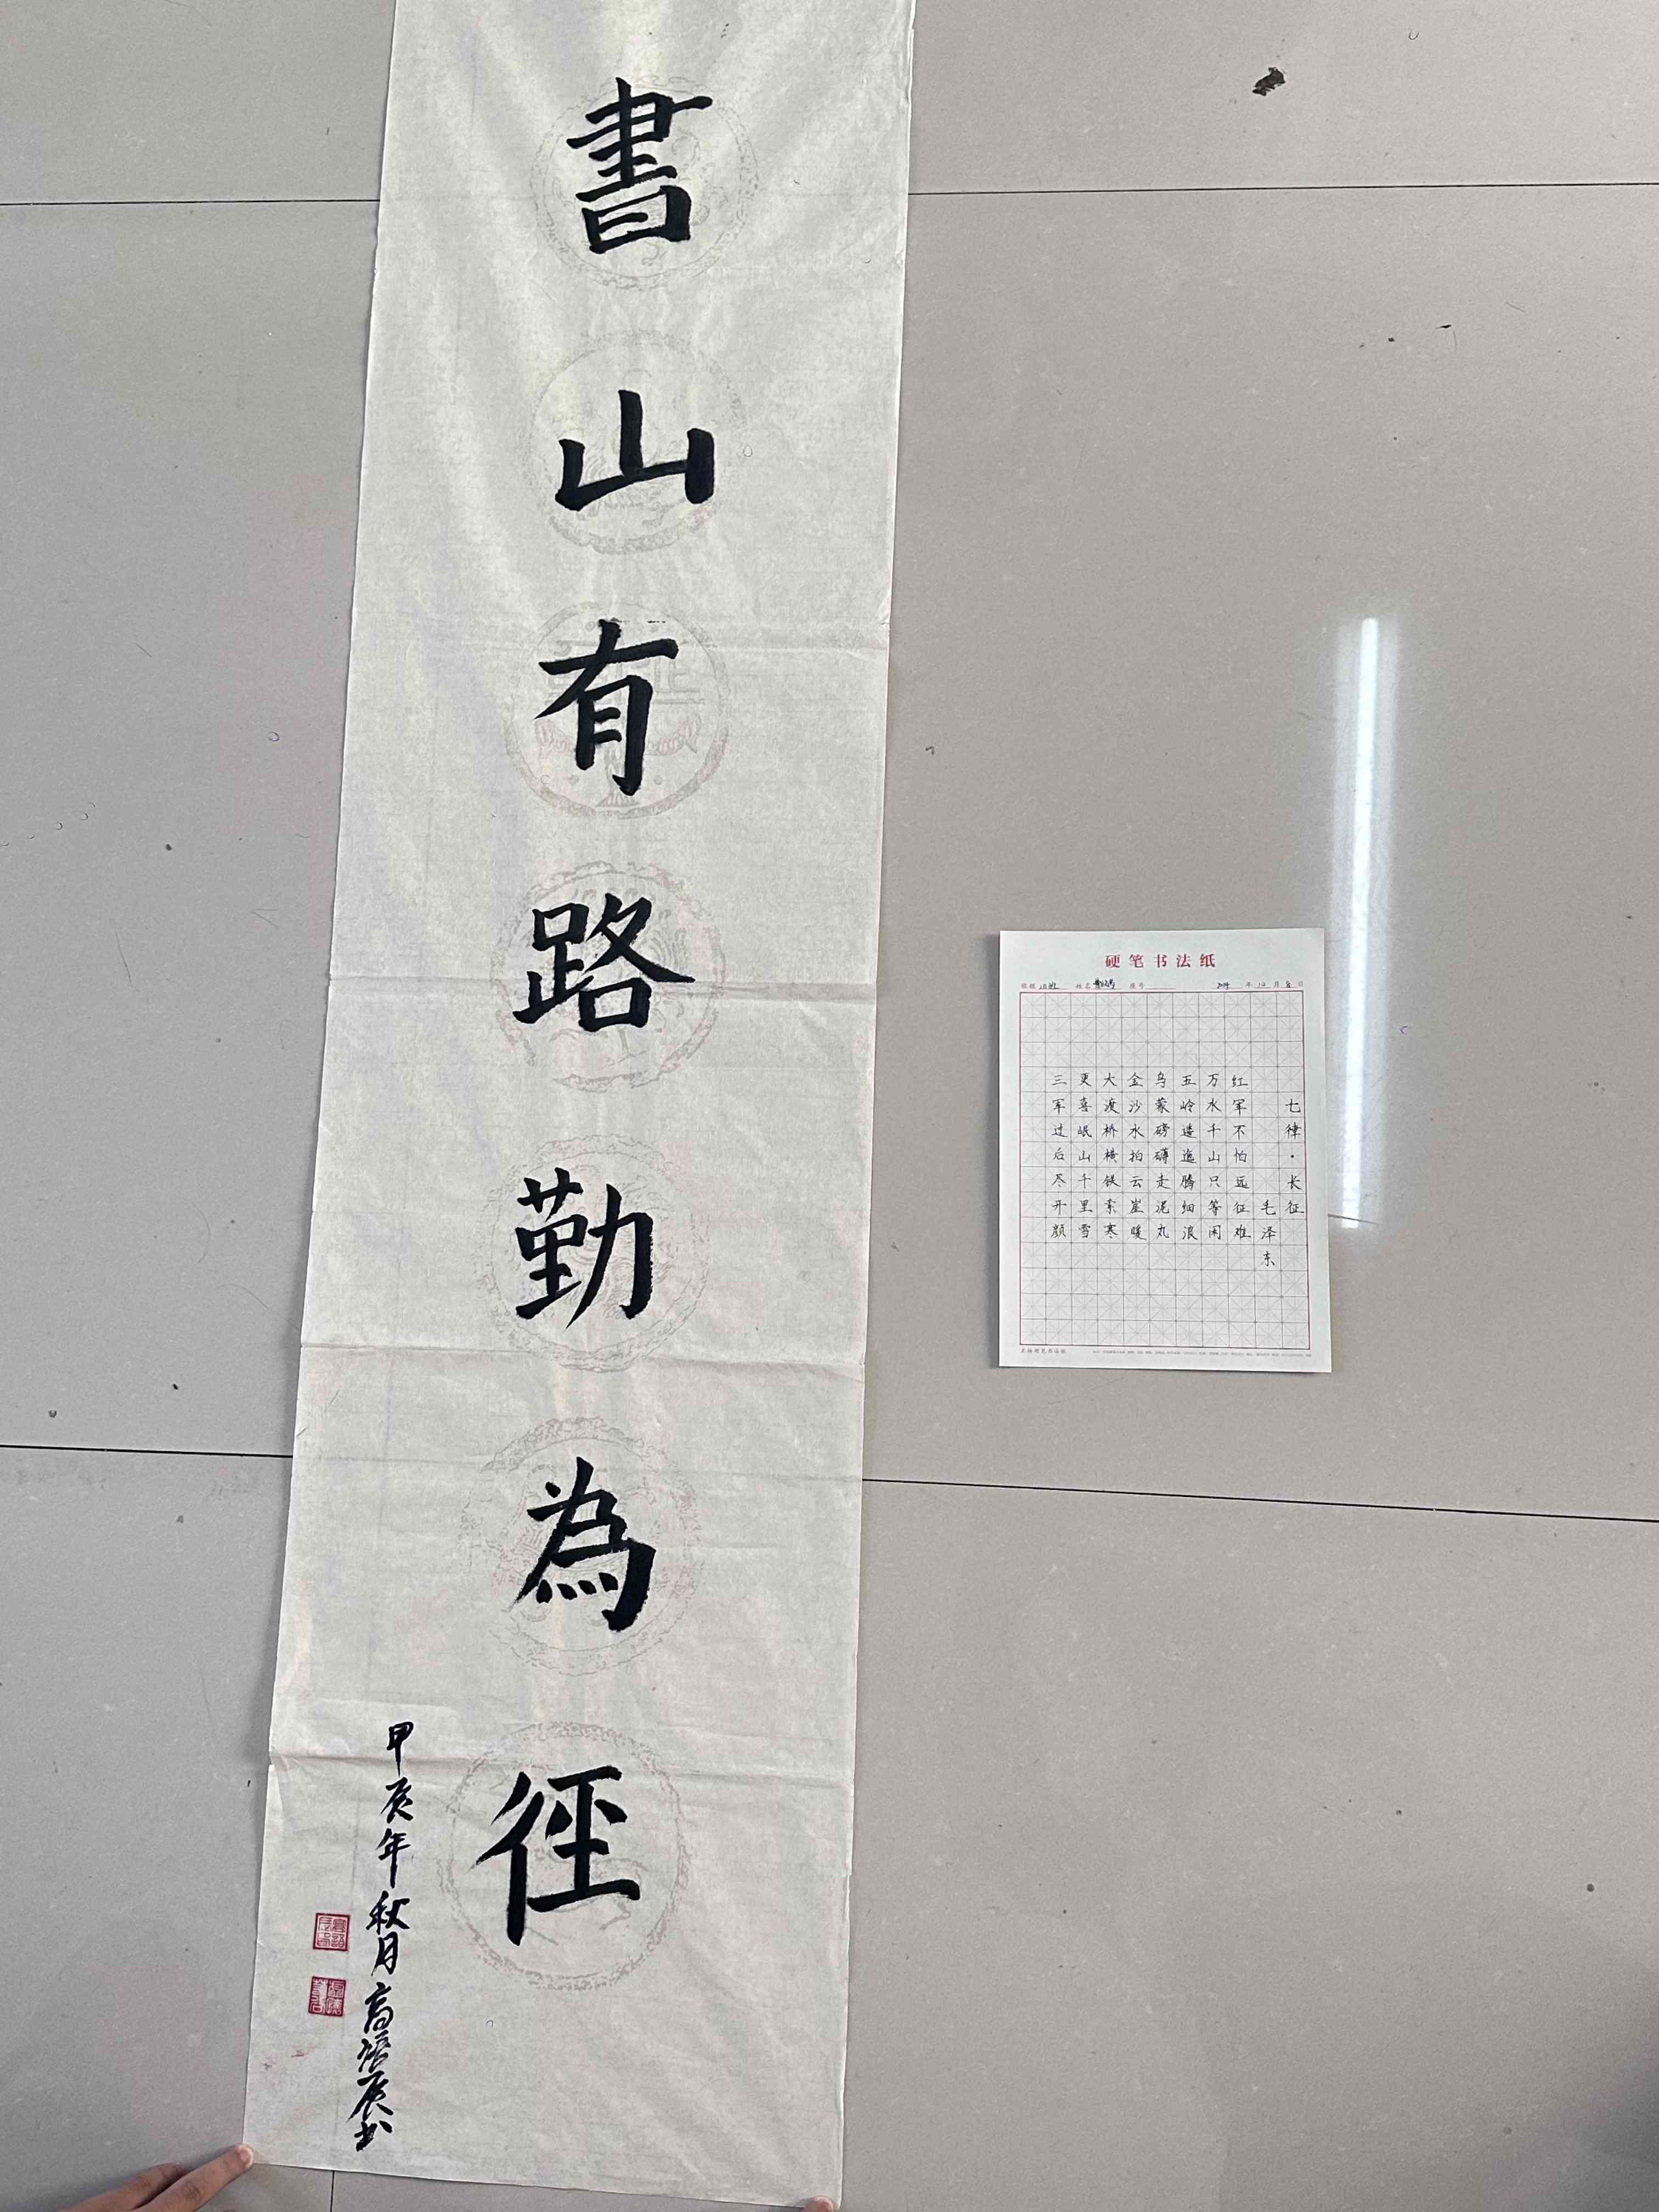 書山有路勤為徑
甲辰年秋月高
硬笔书法纸
班级
姓名
座号
年12月8日
七律·长征
毛泽东
红军不怕远征难
万水千山只等闲
五岭逶迤腾细浪
乌蒙磅礴走泥丸
金沙水拍云崖暖
大渡桥横铁索寒
更喜岷山千里雪
三军过后尽开颜